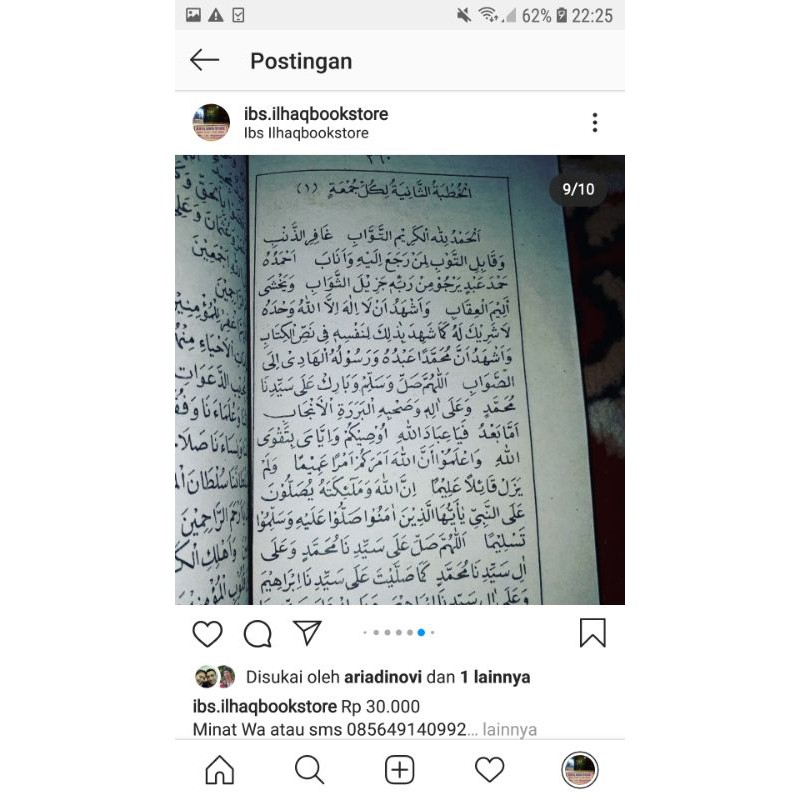 62% 22:25
Postingan
ibs.ilhaqbookstore
Ibs Ilhaqbookstore
9/10
٣٦٠
اَلْخُطْبَةُ الثَّانِيَةُ لِكُلِّ جُمْعَةٍ (١)
اَلْحَمْدُ لِلّٰهِ الْكَرِيْمِ التَّوَّابِ غَافِرِ الذَّنْبِ
وَقَابِلِ التَّوْبِ لِمَنْ رَجَعَ اِلَيْهِ وَاَنَابَ اَحْمَدُهُ
حَمْدَ عَبْدٍ يَرْجُوْ مِنْ رَبِّهِ جَزِيْلَ الثَّوَابِ وَيَخْشَى
اَلِيْمَ الْعِقَابِ وَاَشْهَدُ اَنْ لَا اِلٰهَ اِلَّا اللهُ وَحْدَهُ
لَا شَرِيْكَ لَهُ كَمَا شَهِدَ بِذٰلِكَ لِنَفْسِهِ فِى نَصِّ الْكِتَابِ
وَاَشْهَدُ اَنَّ مُحَمَّدًا عَبْدُهُ وَرَسُوْلُهُ الْهَادِى اِلَى
الصَّوَابِ اَللّٰهُمَّ صَلِّ وَسَلِّمْ وَبَارِكْ عَلَى سَيِّدِنَا
مُحَمَّدٍ وَعَلَى اٰلِهِ وَصَحْبِهِ الْبَرَرَةِ الْاَنْجَابِ
اَمَّا بَعْدُ فَيَا عِبَادَ اللهِ اُوْصِيْكُمْ وَاِيَّاىَ بِتَقْوَى
اللهِ وَاعْلَمُوْا اَنَّ اللهَ اَمَرَكُمْ اَمْرًا عَمِيْمًا وَلَمْ
يَزَلْ قَائِلًا عَلِيْمًا اِنَّ اللهَ وَمَلٰٓئِكَتَهُ يُصَلُّوْنَ
عَلَى النَّبِيِّ يٰاَيُّهَا الَّذِيْنَ اٰمَنُوْا صَلُّوْا عَلَيْهِ وَسَلِّمُوْا
تَسْلِيْمًا اَللّٰهُمَّ صَلِّ عَلَى سَيِّدِنَا مُحَمَّدٍ وَعَلَى
اٰلِ سَيِّدِنَا مُحَمَّدٍ كَمَا صَلَّيْتَ عَلَى سَيِّدِنَا اِبْرَاهِيْمَ
Disukai oleh ariadinovi dan 1 lainnya
ibs.ilhaqbookstore Rp 30.000
Minat Wa atau sms 085649140992... lainnya